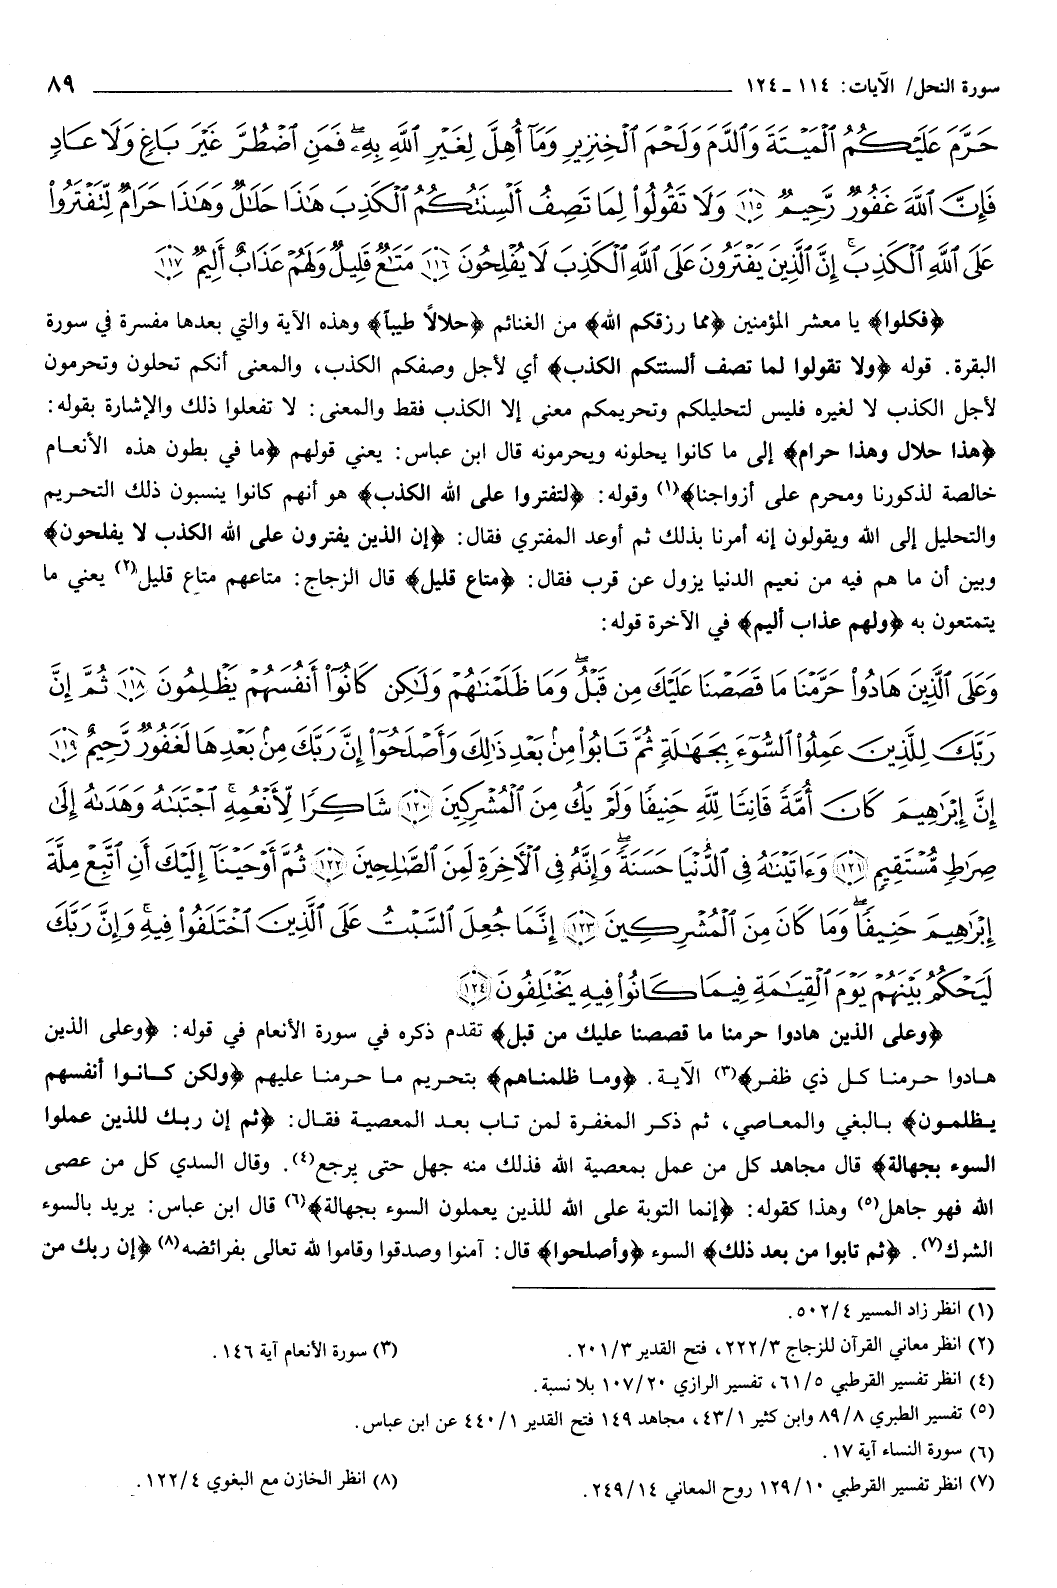 سورة النحل/ الآيات: ١١٤ - ١٢٤ ٨٩
حَرَّمَ عَلَيْكُمُ الْمَيْتَةَ وَالدَّمَ وَلَحْمَ الْخِنزِيرِ وَمَآ أُهِلَّ لِغَيْرِ اللَّهِ بِهِۦۖ فَمَنِ اضْطُرَّ غَيْرَ بَاغٍ وَلَا عَادٍ
فَإِنَّ اللَّهَ غَفُورٌ رَّحِيمٌ ﴿١١٥﴾ وَلَا تَقُولُوا۟ لِمَا تَصِفُ أَلْسِنَتُكُمُ الْكَذِبَ هَٰذَا حَلَٰلٌ وَهَٰذَا حَرَامٌ لِّتَفْتَرُوا۟
عَلَى اللَّهِ الْكَذِبَۚ إِنَّ الَّذِينَ يَفْتَرُونَ عَلَى اللَّهِ الْكَذِبَ لَا يُفْلِحُونَ ﴿١١٦﴾ مَتَٰعٌ قَلِيلٌ وَلَهُمْ عَذَابٌ أَلِيمٌ ﴿١١٧﴾
﴿فكلوا﴾ يا معشر المؤمنين ﴿مما رزقكم الله﴾ من الغنائم ﴿حلالاً طيباً﴾ وهذه الآية والتي بعدها مفسرة في سورة
البقرة. قوله ﴿ولا تقولوا لما تصف ألسنتكم الكذب﴾ أي لأجل وصفكم الكذب، والمعنى أنكم تحلون وتحرمون
لأجل الكذب لا لغيره فليس لتحليلكم وتحريمكم معنى إلا الكذب فقط والمعنى: لا تفعلوا ذلك والإشارة بقوله:
﴿هذا حلال وهذا حرام﴾ إلى ما كانوا يحلونه ويحرمونه قال ابن عباس: يعني قولهم ﴿ما في بطون هذه الأنعام
خالصة لذكورنا ومحرم على أزواجنا﴾(١) وقوله: ﴿لتفتروا على الله الكذب﴾ هو أنهم كانوا ينسبون ذلك التحريم
والتحليل إلى الله ويقولون إنه أمرنا بذلك ثم أوعد المفتري فقال: ﴿إن الذين يفترون على الله الكذب لا يفلحون﴾
وبين أن ما هم فيه من نعيم الدنيا يزول عن قرب فقال: ﴿متاع قليل﴾ قال الزجاج: متاعهم متاع قليل(٢) يعني ما
يتمتعون به ﴿ولهم عذاب أليم﴾ في الآخرة قوله:
وَعَلَى الَّذِينَ هَادُوا۟ حَرَّمْنَا مَا قَصَصْنَا عَلَيْكَ مِن قَبْلُۖ وَمَا ظَلَمْنَٰهُمْ وَلَٰكِن كَانُوٓا۟ أَنفُسَهُمْ يَظْلِمُونَ ﴿١١٨﴾ ثُمَّ إِنَّ
رَبَّكَ لِلَّذِينَ عَمِلُوا۟ السُّوٓءَ بِجَهَٰلَةٍ ثُمَّ تَابُوا۟ مِنۢ بَعْدِ ذَٰلِكَ وَأَصْلَحُوٓا۟ إِنَّ رَبَّكَ مِنۢ بَعْدِهَا لَغَفُورٌ رَّحِيمٌ ﴿١١٩﴾
إِنَّ إِبْرَٰهِيمَ كَانَ أُمَّةً قَانِتًا لِّلَّهِ حَنِيفًا وَلَمْ يَكُ مِنَ الْمُشْرِكِينَ ﴿١٢٠﴾ شَاكِرًا لِّأَنْعُمِهِۚ اجْتَبَىٰهُ وَهَدَىٰهُ إِلَىٰ
صِرَٰطٍ مُّسْتَقِيمٍ ﴿١٢١﴾ وَءَاتَيْنَٰهُ فِى الدُّنْيَا حَسَنَةًۖ وَإِنَّهُۥ فِى الْأَخِرَةِ لَمِنَ الصَّٰلِحِينَ ﴿١٢٢﴾ ثُمَّ أَوْحَيْنَآ إِلَيْكَ أَنِ اتَّبِعْ مِلَّةَ
إِبْرَٰهِيمَ حَنِيفًاۖ وَمَا كَانَ مِنَ الْمُشْرِكِينَ ﴿١٢٣﴾ إِنَّمَا جُعِلَ السَّبْتُ عَلَى الَّذِينَ اخْتَلَفُوا۟ فِيهِۚ وَإِنَّ رَبَّكَ
لَيَحْكُمُ بَيْنَهُمْ يَوْمَ الْقِيَٰمَةِ فِيمَا كَانُوا۟ فِيهِ يَخْتَلِفُونَ ﴿١٢٤﴾
﴿وعلى الذين هادوا حرمنا ما قصصنا عليك من قبل﴾ تقدم ذكره في سورة الأنعام في قوله: ﴿وعلى الذين
هادوا حرمنا كل ذي ظفر﴾(٣) الآية. ﴿وما ظلمناهم﴾ بتحريم ما حرمنا عليهم ﴿ولكن كانوا أنفسهم
يظلمون﴾ بالبغي والمعاصي، ثم ذكر المغفرة لمن تاب بعد المعصية فقال: ﴿ثم إن ربك للذين عملوا
السوء بجهالة﴾ قال مجاهد كل من عمل بمعصية الله فذلك منه جهل حتى يرجع(٤). وقال السدي كل من عصى
الله فهو جاهل(٥) وهذا كقوله: ﴿إنما التوبة على الله للذين يعملون السوء بجهالة﴾(٦) قال ابن عباس: يريد بالسوء
الشرك(٧). ﴿ثم تابوا من بعد ذلك﴾ السوء ﴿وأصلحوا﴾ قال: آمنوا وصدقوا وقاموا لله تعالى بفرائضه(٨) ﴿إن ربك من
(١) انظر زاد المسير ٥٠٢/٤.
(٢) انظر معاني القرآن للزجاج ٢٢٢/٣، فتح القدير ٢٠١/٣. (٣) سورة الأنعام آية ١٤٦.
(٤) انظر تفسير القرطبي ٦١/٥، تفسير الرازي ١٠٧/٢٠ بلا نسبة.
(٥) تفسير الطبري ٨٩/٨ وابن كثير ٤٣/١، مجاهد ١٤٩ فتح القدير ٤٤٠/١ عن ابن عباس.
(٦) سورة النساء آية ١٧.
(٧) انظر تفسير القرطبي ١٢٩/١٠ روح المعاني ٢٤٩/١٤. (٨) انظر الخازن مع البغوي ١٢٢/٤.